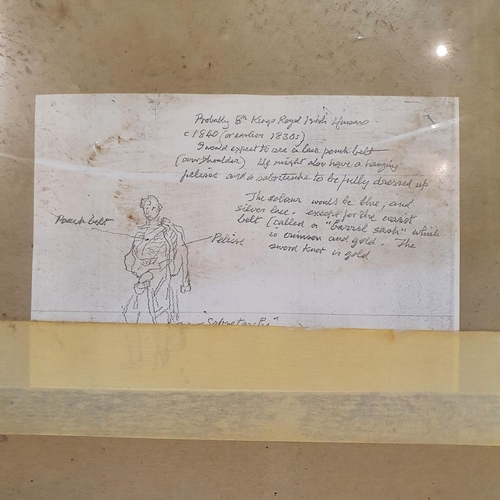 Probably 8th Kings Royal Irish Hussars
c 1840 (or earlier 1830s)
I would expect to see a lace pouch belt
(over shoulder) He might also have a hanging
pelisse and a sabretache to be fully dressed up
The colour would be blue, and
silver lace. except for the waist
belt (called a "barrel sash" which
is crimson and gold. The
sword knot is gold
Pouch belt
Pelisse
"Sabretache"